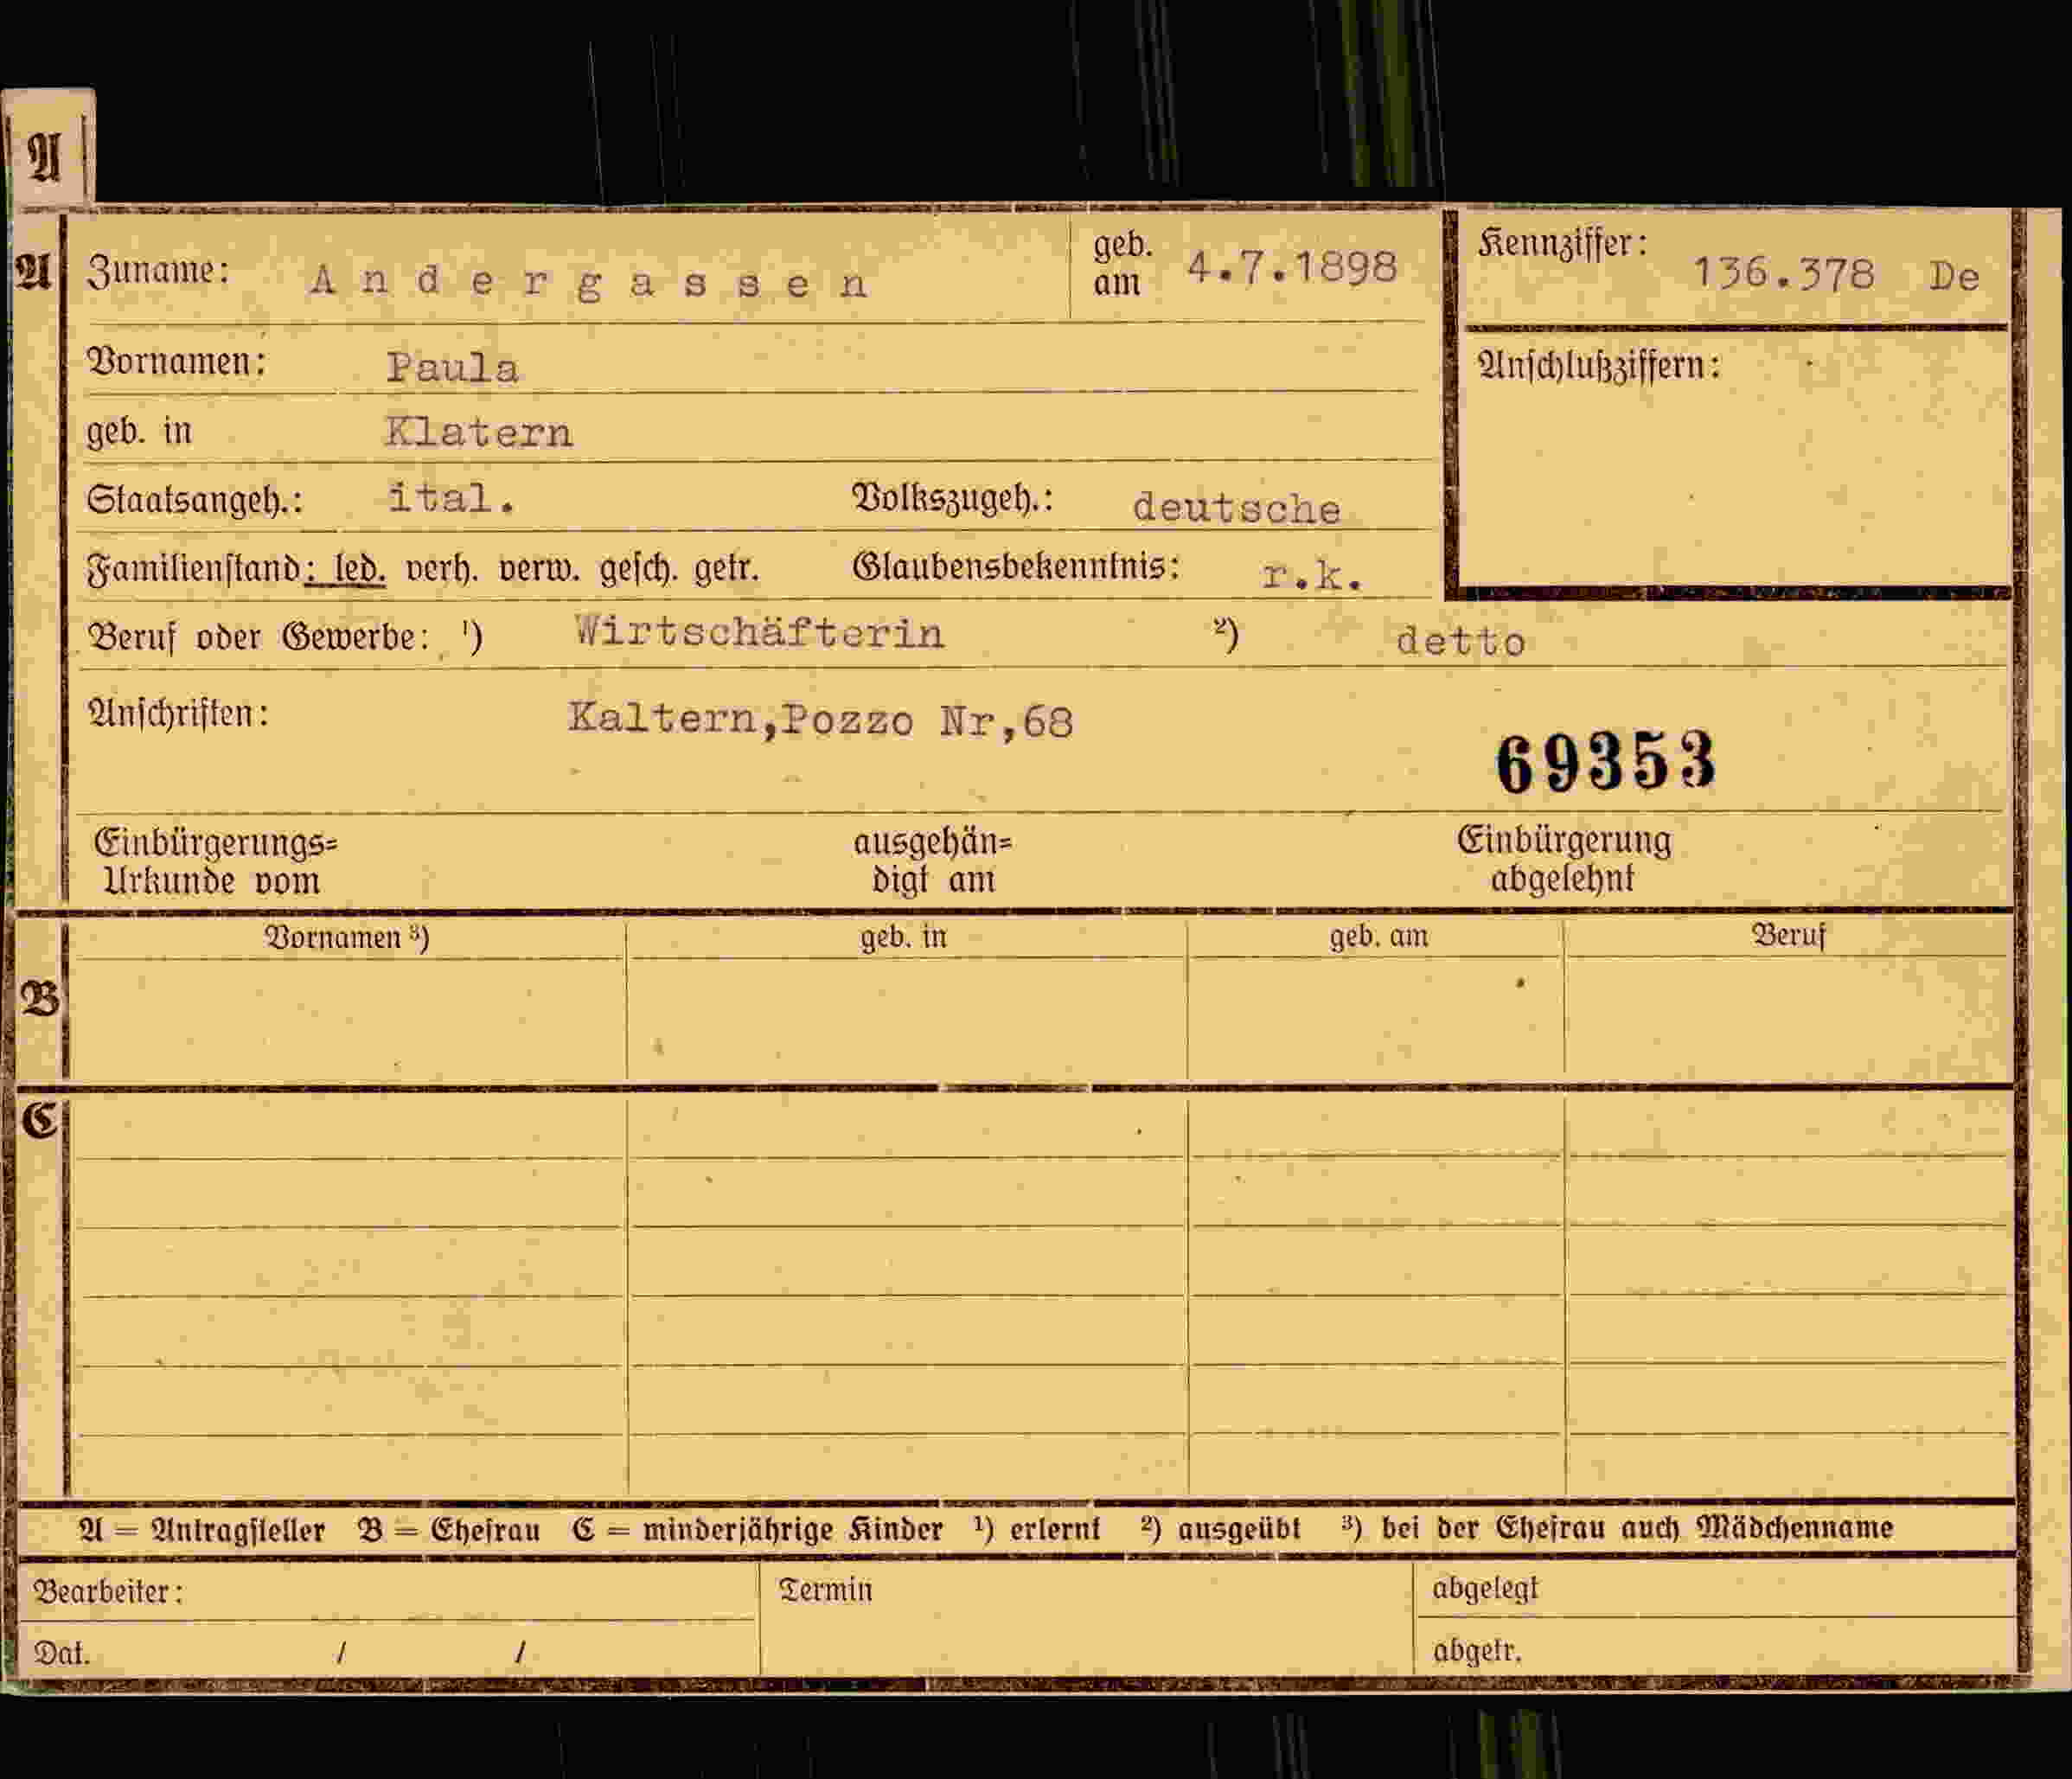 A
A Zuname: Andergassen geb. am 4.7.1898 Kennziffer: 136.378 De
Vornamen: Paula Anschlußziffern:
geb. in Klatern
Staatsangeh.: ital. Volkszugeh.: deutsche
Familienstand: led. verh. verw. gesch. getr. Glaubensbekenntnis: r.k.
Beruf oder Gewerbe: ¹) Wirtschäfterin ²) detto
Anschriften: Kaltern,Pozzo Nr,68
69353
Einbürgerungs= ausgehän= Einbürgerung
Urkunde vom digt am abgelehnt
Vornamen ³) geb. in geb. am Beruf
B
C
A = Antragsteller B = Ehefrau C = minderjährige Kinder ¹) erlernt ²) ausgeübt ³) bei der Ehefrau auch Mädchenname
Bearbeiter: Termin abgelegt
Dat. / / abgetr.